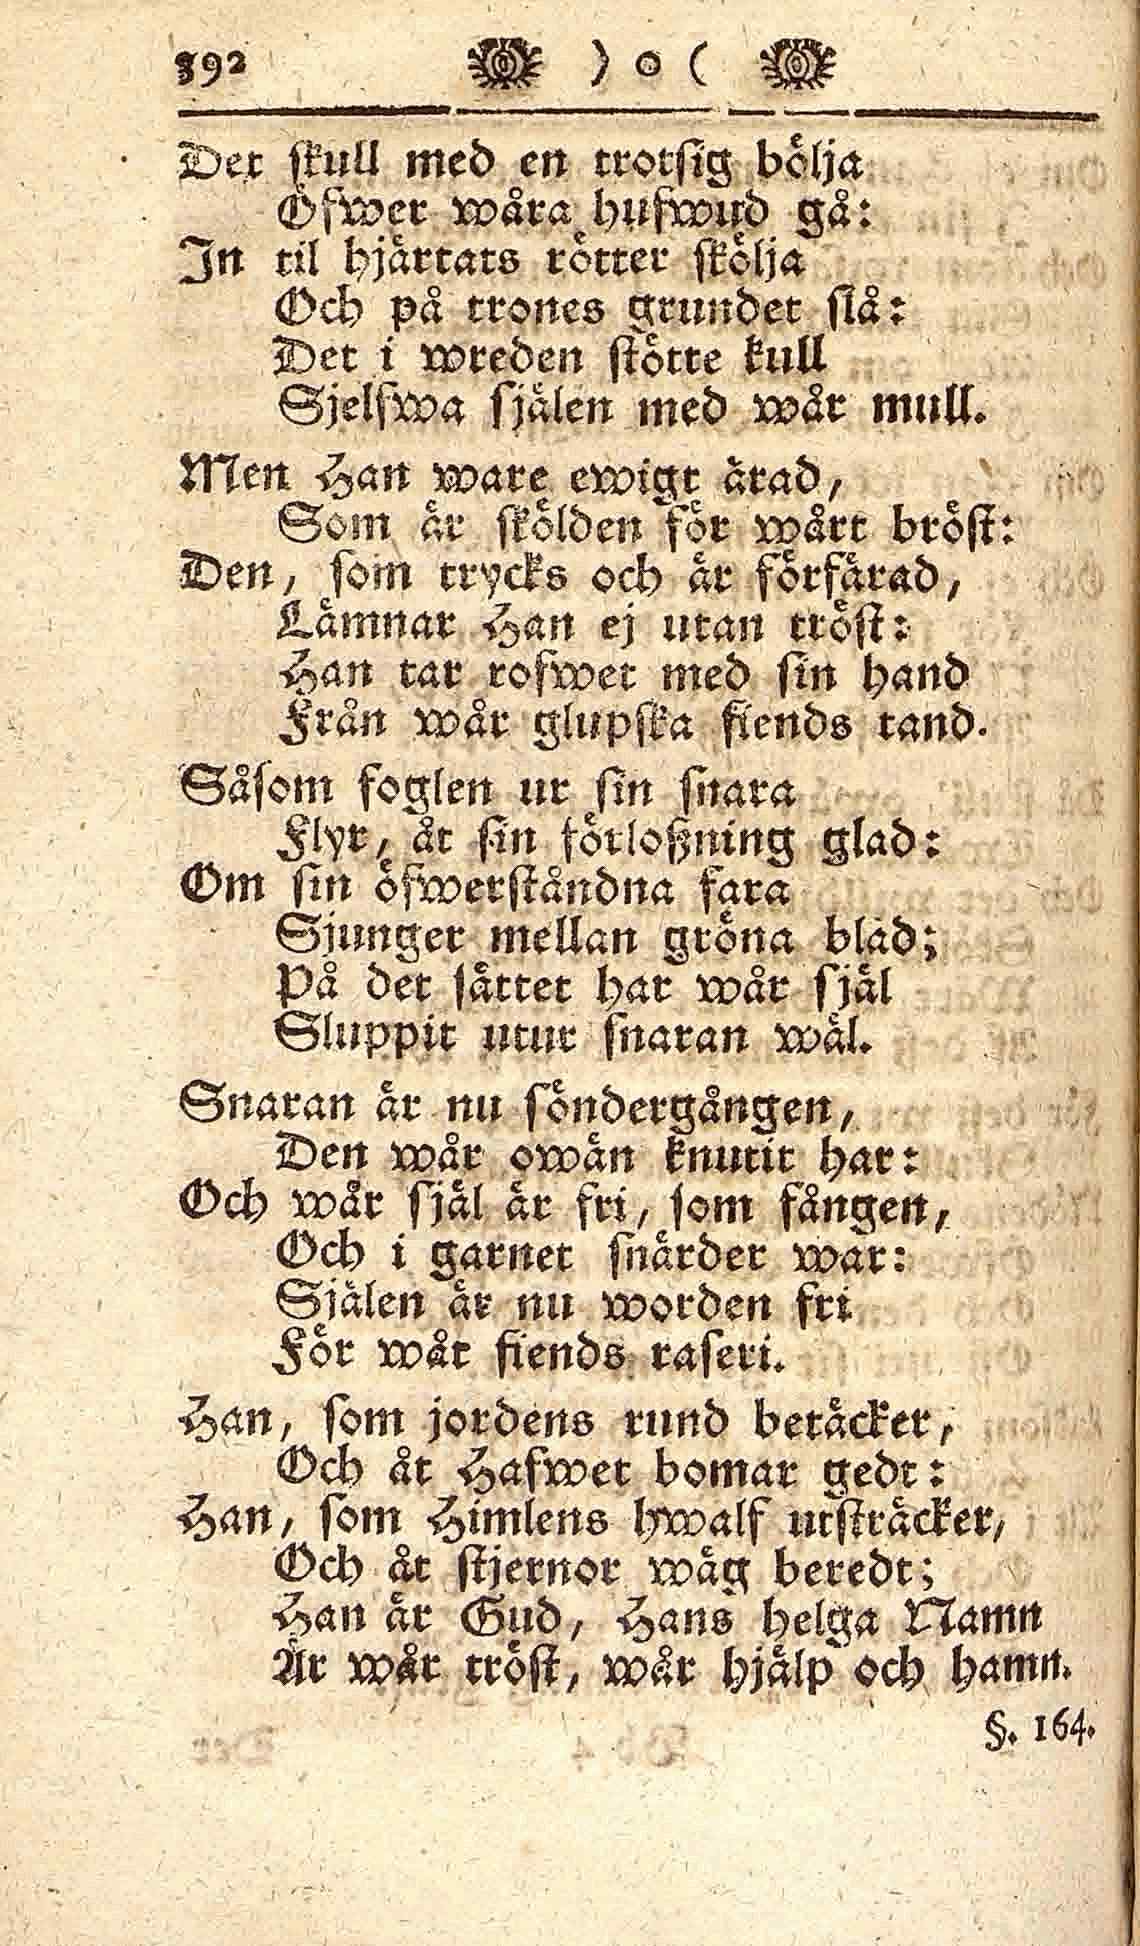 392 ) o (
Det skull med en trotsig bölja
Öfwer wåra hufwud gå:
In til hjärtats rötter skölja
Och på trones grundet slå:
Det i wreden stötte kull
Sjelfwa själen med wår mull.
Men Han ware ewigt ärad,
Som är skölden för wårt bröst:
Den, som trycks och är förfärad,
Lämnar Han ej utan tröst:
Han tar rofwet med sin hand
Från wår glupska fiends tand.
Såsom foglen ur sin snara
Flyr, åt sin förloßning glad:
Om sin öfwerståndna fara
Sjunger mellan gröna blad;
På det sättet har wår själ
Sluppit utur snaran wäl.
Snaran är nu söndergången,
Den wår owän knutit har:
Och wår själ är fri, som fången,
Och i garnet snärder war:
Själen är nu worden fri
För wår fiends raseri.
Han, som jordens rund betäcker,
Och åt Hafwet bomar gedt:
Han, som Himlens hwalf utsträcker,
Och åt stjernor wäg beredt;
Han är Gud, Hans helga Namn
Är wår tröst, wår hjälp och hamn.
§. 164.